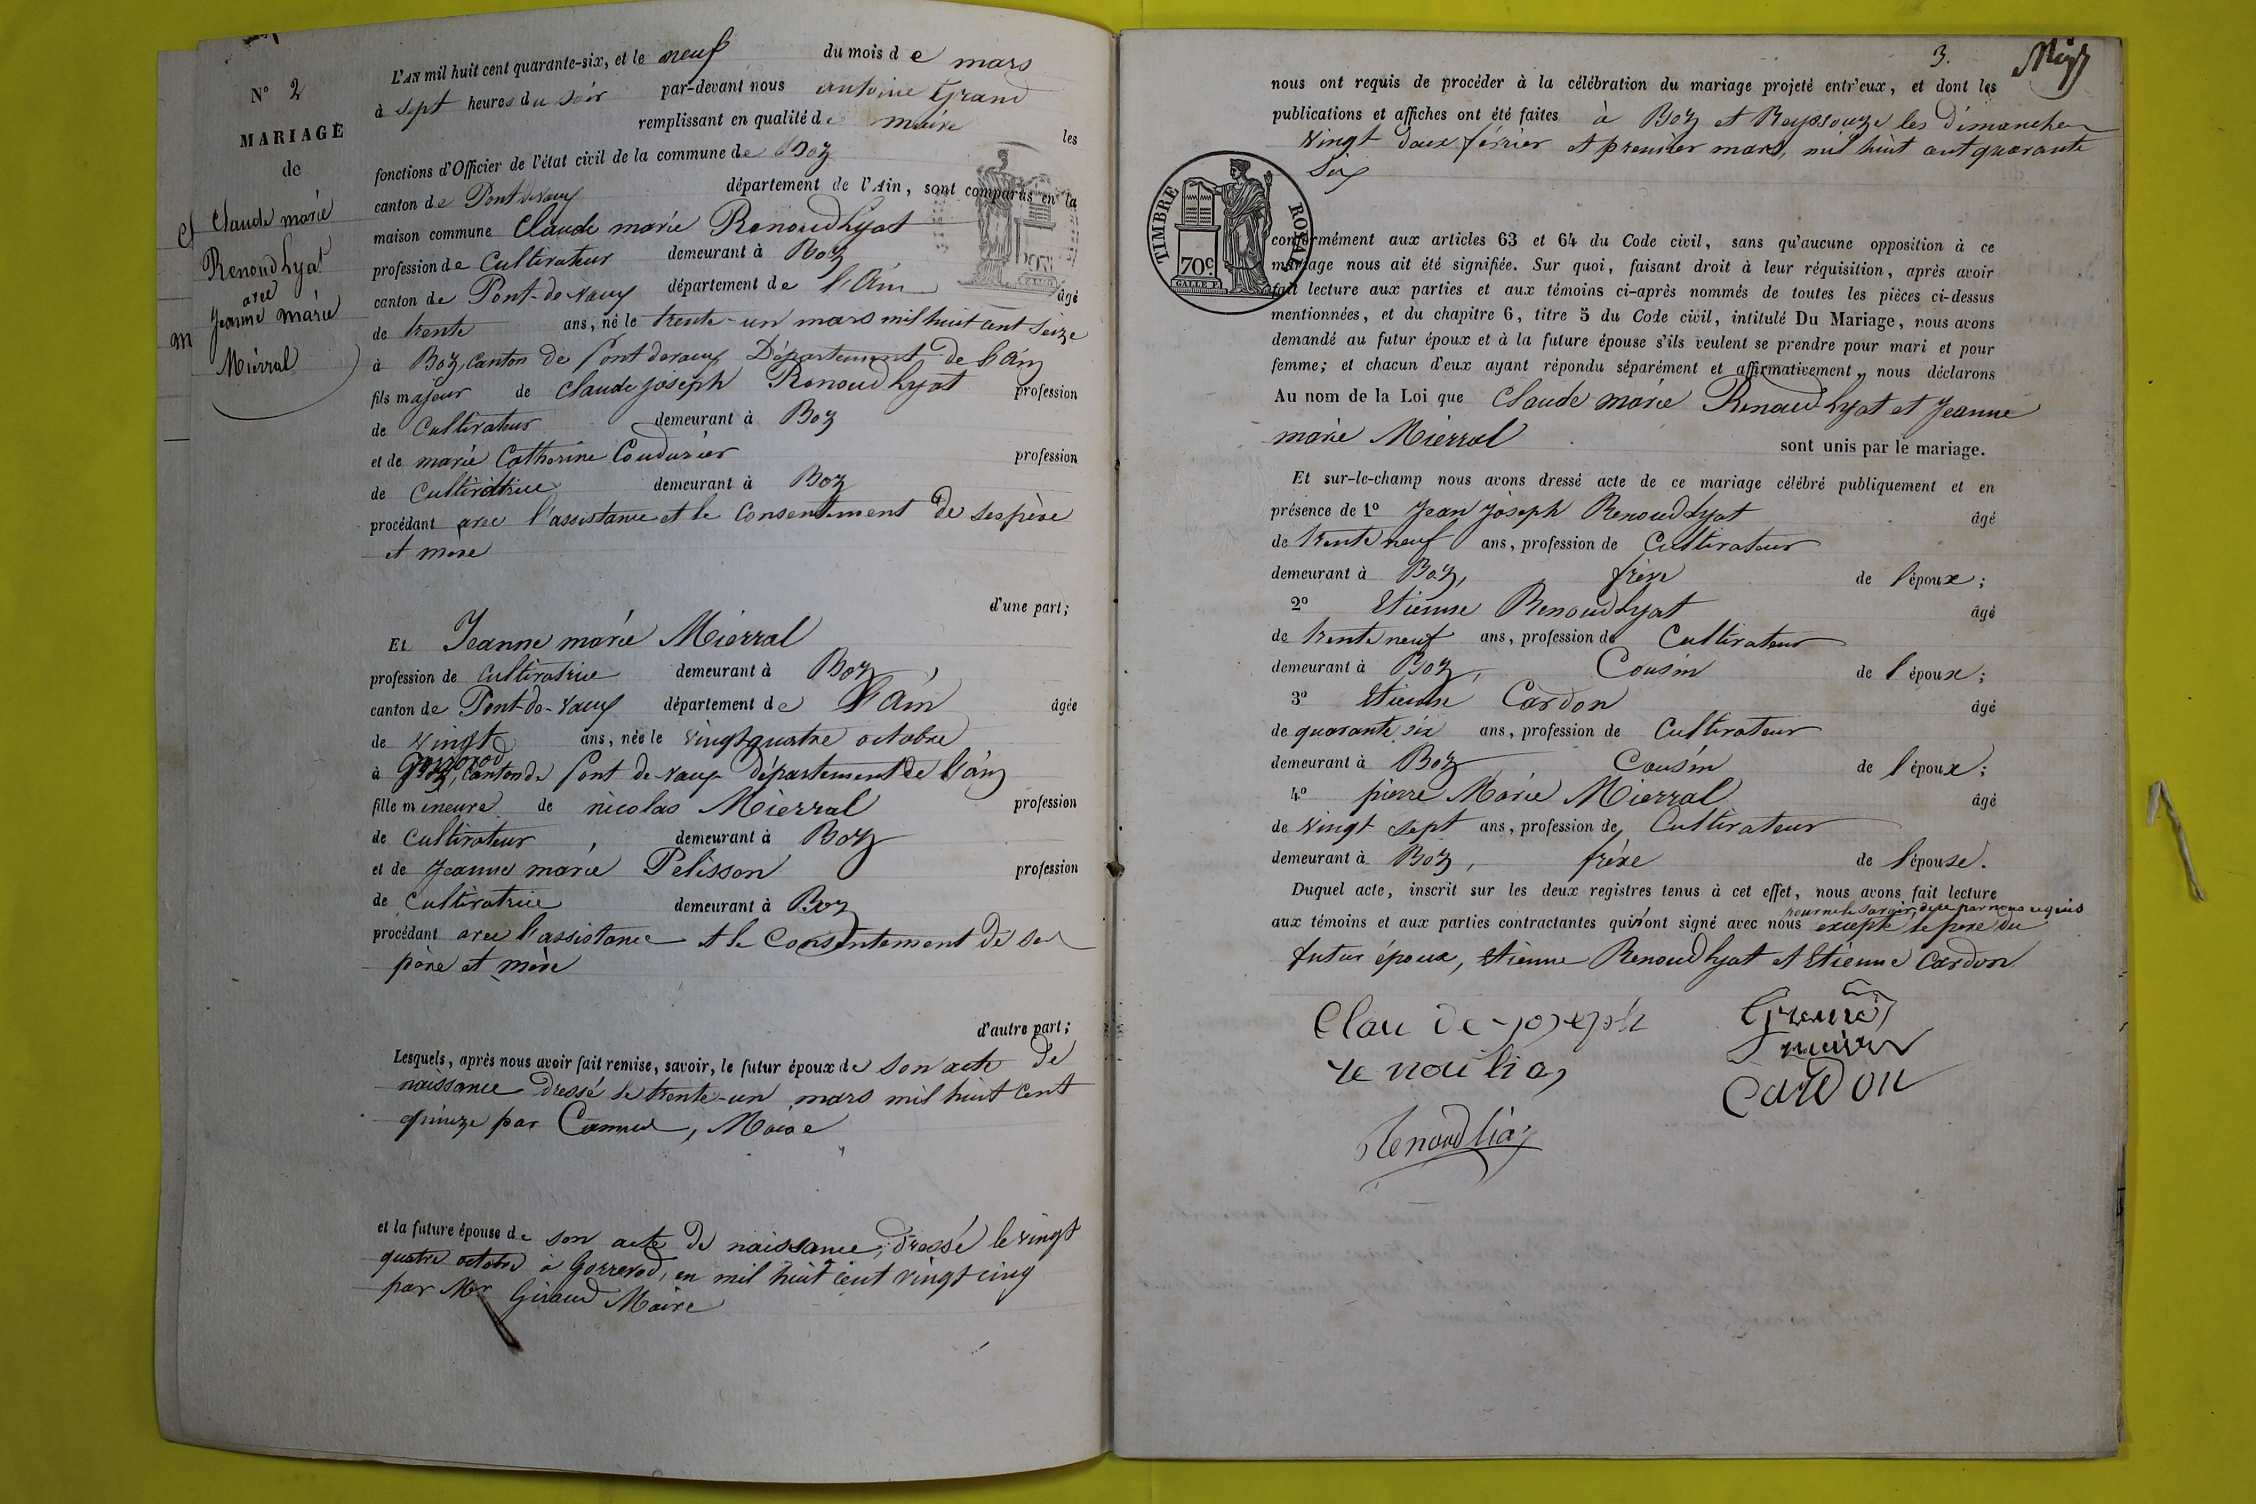 N° 2
MARIAGE
de
Claude marie
Renoud Lyat
avec
Jeanne marie
Mierral
L'AN mil huit cent quarante-six, et le neuf du mois de mars
à sept heures du soir par-devant nous antoine Grand
remplissant en qualité de maire les
fonctions d'Officier de l'état civil de la commune de Boz
canton de Pont de vaux département de l'Ain, sont comparus en la
maison commune Claude marie Renoud Lyat
profession de Cultivateur demeurant à Boz
canton de Pont-de-vaux département de l'Ain âgé
de trente ans, né le trente-un mars mil huit cent seize
à Boz, canton de Pont de vaux Département de l'Ain
fils majeur de Claude joseph Renoud Lyat profession
de Cultivateur demeurant à Boz
et de marie Catherine Coudurier profession
de Cultivatrice demeurant à Boz
procédant avec l'assistance et le Consentement de ses père
et mere
d'une part;
Et Jeanne marie Mierral
profession de Cultivatrice demeurant à Boz,
canton de Pont-de-vaux département de l'Ain âgée
de vingt ans, née le vingt quatre octobre
à Gorrevod, canton de Pont de-vaux département de l'Ain
fille mineure de nicolas Mierral profession
de Cultivateur, demeurant à Boz
et de Jeanne marie Pelisson profession
de Cultivatrice demeurant à Boz
procédant avec l'assistance et le Consentement de ses
père et mère
d'autre part;
Lesquels, après nous avoir fait remise, savoir, le futur époux de son acte de
naissance dressé le trente-un mars mil huit cent
quinze par , Maire
et la future épouse de son acte de naissance, dressé le vingt
quatre octobre à Gorrevod, en mil huit cent vingt cinq
par Mr Giraud Maire
3.
nous ont requis de procéder à la célébration du mariage projeté entr'eux, et dont les
publications et affiches ont été faites à Boz et Reyssouze les dimanches
vingt deux février et premier mars, mil huit cent quarante
six
TIMBRE ROYAL
70c
conformément aux articles 63 et 64 du Code civil, sans qu'aucune opposition à ce
mariage nous ait été signifiée. Sur quoi, faisant droit à leur réquisition, après avoir
fait lecture aux parties et aux témoins ci-après nommés de toutes les pièces ci-dessus
mentionnées, et du chapitre 6, titre 5 du Code civil, intitulé Du Mariage, nous avons
demandé au futur époux et à la future épouse s'ils veulent se prendre pour mari et pour
femme; et chacun d'eux ayant répondu séparément et affirmativement, nous déclarons
Au nom de la Loi que Claude marie Renoud Lyat et Jeanne
marie Mierral sont unis par le mariage.
Et sur-le-champ nous avons dressé acte de ce mariage célébré publiquement et en
présence de 1° Jean joseph Renoud Lyat âgé
de trente neuf ans, profession de Cultivateur
demeurant à Boz, frère de l'époux;
2° Etienne Renoud Lyat âgé
de trente neuf ans, profession de Cultivateur
demeurant à Boz, Cousin de l'époux;
3° Etienne Cardon âgé
de quarante six ans, profession de Cultivateur
demeurant à Boz Cousin de l'époux;
4° pierre Marie Mierral âgé
de vingt sept ans, profession de Cultivateur
demeurant à Boz, frère de l'épouse.
Duquel acte, inscrit sur les deux registres tenus à cet effet, nous avons fait lecture
pour ne le savoir, de ce par nous requis
aux témoins et aux parties contractantes qui n'ont signé avec nous excepté le pere du
futur époux, Etienne Renoud Lyat et Etienne Cardon
Clau de joseph
re nou lia
Grand
maire
Cardon
Renoud lia